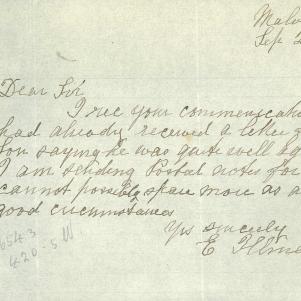 Malv
Sep 2
Dear Sir
I rec your communicati
had already received a letter f
Son saying he was quite well ag
I am sending Postal notes for
cannot possibly spare more as a
good circumstances
Yrs sincerely
E
6543
420.5 W